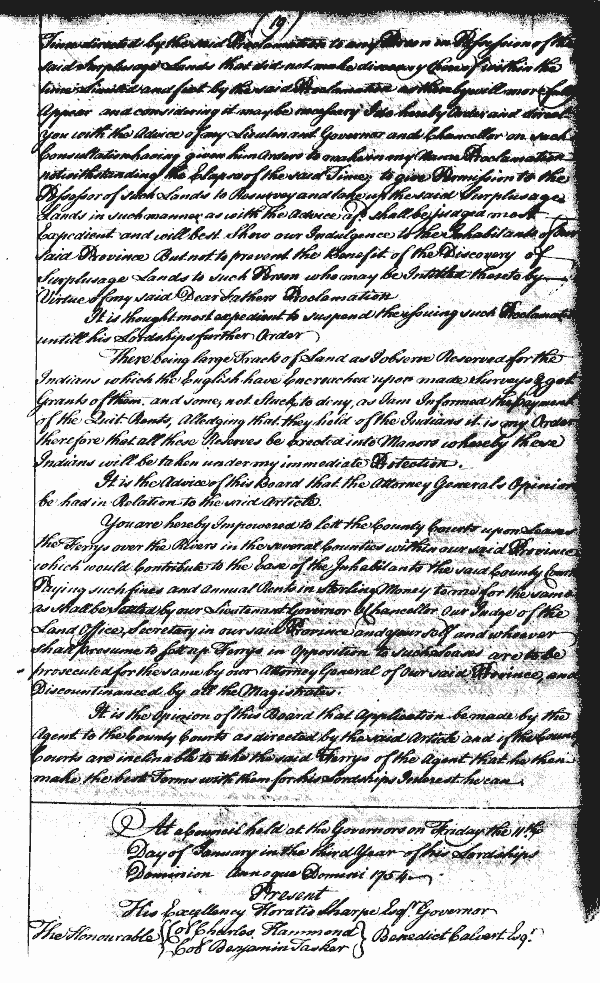 (19)
Time directed by the said Proclamation to any Person in Possession of the
said Surplusage Lands that did not make discovery thereof within the
time Limited and fixt by the said Proclamation as thereby will more fully
Appear and considering it may be necessary I do hereby Order and direct
You with the Advice of my Lieutenant Governor and Chancellor on such
Consultation having given him Orders to make in my Name Proclamation
notwithstanding the Elapse of the said Time, to give Permission to the
Possessor of such Lands to Resurvey and take up the said Surplusage
Lands in such manner as with the Advice afd. shall be judged most
Expedient and will best Show our Indulgence to the Inhabitants of Our
said Province But not to prevent the Benefit of the Discovery of
Surplusage Lands to such Person who may be Intitled thereto by
Virtue of my said Dear Fathers Proclamation
It is thought most expedient to suspend the issuing such Proclamation
untill his Lordships further Order
There being large Tracts of Land as I observe Reserved for the
Indians which the English have Encroached upon made Surveys & got
Grants of them, and some, not Slack to deny, as I am Informed the payment
of the Quit Rents, Alledging that they hold of the Indians it is my Order
therefore that all those Reserves be Erected into Manors whereby these
Indians will be taken under my immediate Protection.
It is the Advice of this Board that the Attorney General's Opinion
be had in Relation to the said Article
You are hereby Impowered to lett the County Courts upon Leases
the Ferrys over the Rivers in the several Counties within our said Province
which would Contribute to the Ease of the Inhabitants the said County Courts
Paying such fines and Annual Rents in Sterling Money to me for the same
as shall be Settled by our Lieutenant Governor Chancellor, Our Judge of the
Land Office, Secretary in our said Province and your self and whoever
shall presume to set up Ferrys in Opposition to such leases are to be
prosecuted for the same by our Attorney General of Our said Province, and
Discountinanced by all the Magistrates.
It is the opinion of this Board that Application be made by the
Agent to the County Courts as directed by the said Article and if the County
Courts are inclinable to take the said Ferrys of the Agent that he then
make the best Terms with them for his Lordships Interest he can
At a Council held at the Governors on Friday the 11th
Day of January in the third Year of his Lordships
Dominion Annoque Domini 1754
Present
His Excellency Horatio Sharpe Esqr. Governor
The Honourable { Col Charles Hammond } Benedict Calvert Esqr.
Col Benjamin Tasker